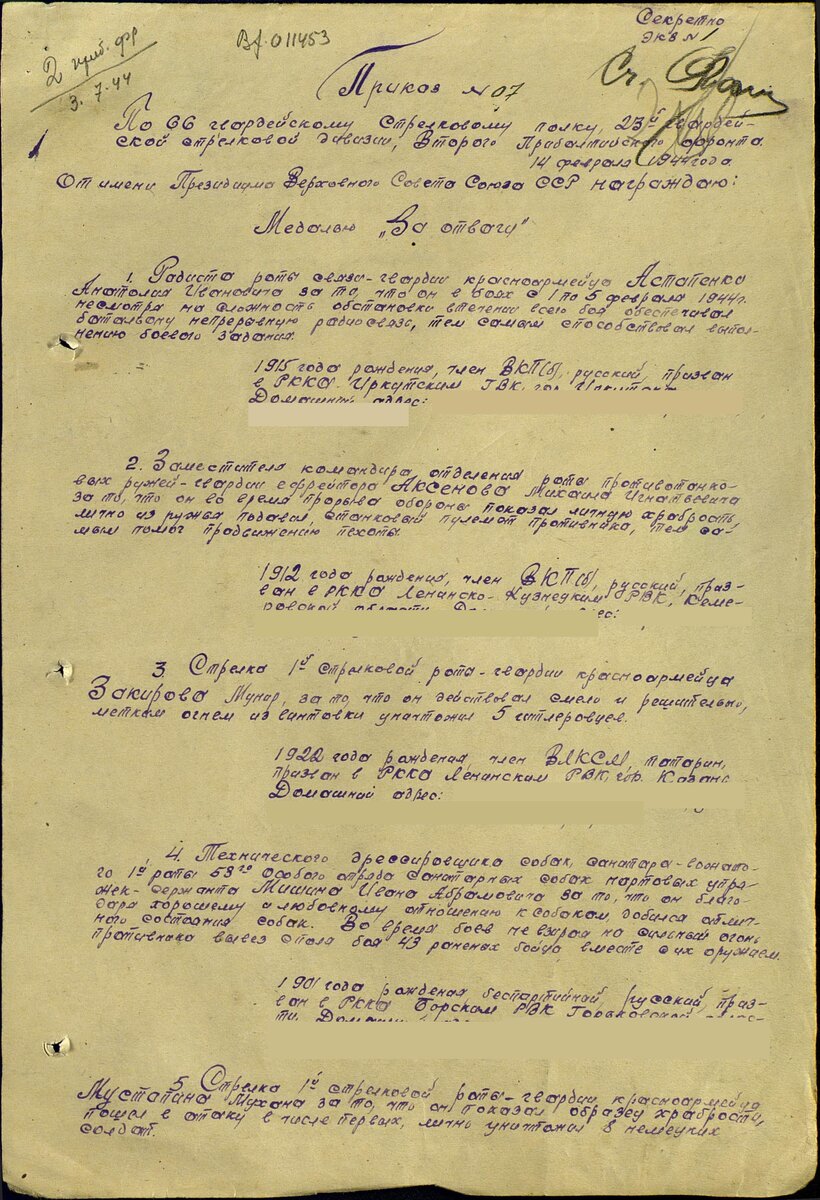 Секретно
экз №1
Вд. 011453
3.7.44
Приказ №07
По 66 гвардейскому Стрелковому полку, 23й гвардей-
ской стрелковой дивизии, Второго Прибалтийского фронта.
14 февраля 1944 года
От имени Президиума Верховного Совета Союза ССР награждаю:
Медалью „За отвагу"
1. Радиста роты связи-гвардии красноармейца Астапенко
Анатолия Ивановича за то, что он в боях с 1 по 5 февраля 1944 г.
несмотря на сложность обстановки втечении всего боя обеспечивал
батальону непрерывную радиосвязь, тем самым способствовал выпол-
нению боевого задания.
1915 года рождения, член ВКП(б), русский, призван
в РККА Иркутским ГВК, гор. Иркутска
Домашний адрес:
2. Заместителя командира отделения роты противотанко-
вых ружей-гвардии ефрейтора Аксенова Михаила Игнатьевича
за то, что он во время прорыва обороны показал личную храбрость,
лично из ружья подавил станковый пулемет противника, тем са-
мым помог продвижению пехоты.
1912 года рождения, член ВКП(б), русский, приз-
ван в РККА Ленинско-Кузнецким РВК, Кеме-
ровской области
3. Стрелка 1й стрелковой рота-гвардии красноармейца
Закирова Мунир, за то, что он действовал смело и решительно,
метким огнем из винтовки уничтожил 5 гитлеровцев.
1922 года рождения, член ВЛКСМ, татарин,
призван в РККА Ленинским РВК, гор. Казань
Домашний адрес:
4. Технического дрессировщика собак, санитара-вожато-
го 1й роты 53го особого отряда санитарных собак нартовых упря-
жек-сержанта Мишина Ивана Абрамовича за то, что он благо-
даря хорошему и любовному отношению к собакам, добился отлич-
ного состояния собак. Во время боев не взирая на сильный огонь
противника вывез с поля боя 43 раненых бойца вместе с их оружием.
1901 года рождения беспартийный, русский, приз-
ван в РККА Борским РВК Горьковской облас-
ти.
5. Стрелка 1й стрелковой роты-гвардии красноармейца
Мустапина Мухана за то, что он показал образец храбрости,
пошел в атаку в числе первых, лично уничтожил 8 немецких
солдат.